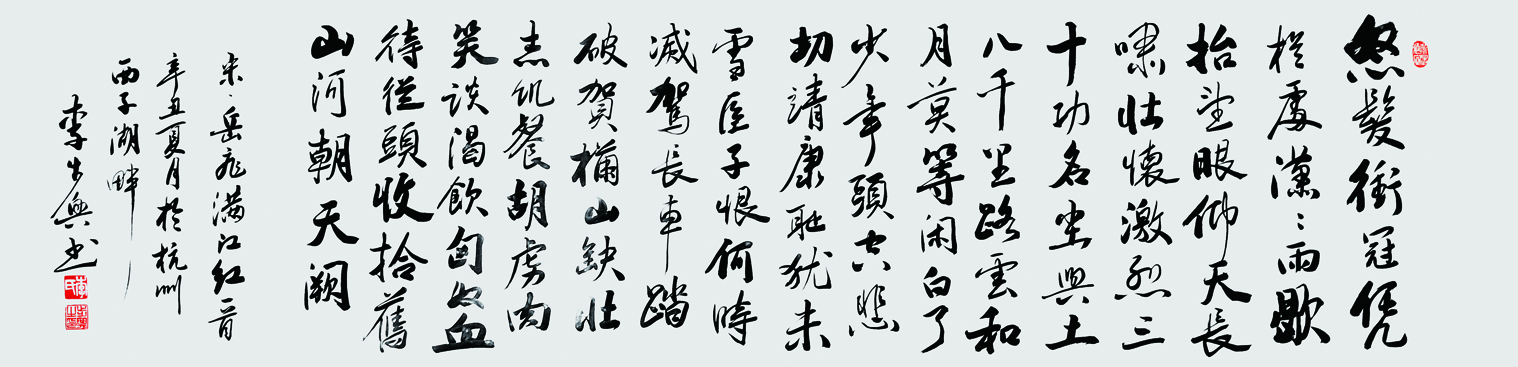 怒髮衝冠凭
栏處潇〻雨歇
抬望眼仰天長
啸壮懷激烈三
十功名尘與土
八千里路雲和
月莫等闲白了
少年頭空悲
切靖康耻犹未
雪臣子恨何時
滅駕長車踏
破賀蘭山缺壮
志飢餐胡虏肉
笑談渴飲匈奴血
待從頭收拾舊
山河朝天阙
宋·岳飛滿江红一首
辛丑夏月於杭州
西子湖畔
李生興书